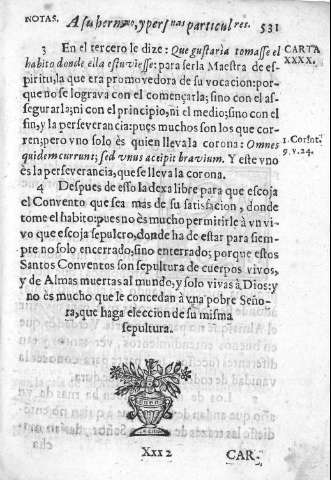 NOTAS. A su hermano, y personas particulares. 531
3 En el tercero le dize: Que gustaria tomasse el
CARTA
habito donde ella estuviesse: para ser la Maestra de es-
XXXX.
piritu, la que era promovedora de su vocacion: por-
que no se lograva con el començarla; sino con el as-
segurarla; ni con el principio, ni el medio; sino con el
fin, y la perseverancia: pues muchos son los que cor-
ren; pero vno solo es quien lleva la corona: Omnes
1. Corint.
quidem currunt; sed vnus accipit bravium. Y este vno
9. v. 24.
es la perseverancia, que se lleva la corona.
4 Despues de esso la dexa libre para que escoja
el Convento que sea más de su satisfacion, donde
tome el habito: pues no ès mucho permitirle à vn vi-
vo que escoja sepulcro, donde ha de estar para siem-
pre no solo encerrado, sino enterrado; porque estos
Santos Conventos son sepultura de cuerpos vivos,
y de Almas muertas al mundo, y solo vivas à Dios: y
no ès mucho que le concedan à vna pobre Seño-
ra, que haga eleccion de su misma
sepultura.
Xxx 2 CAR-